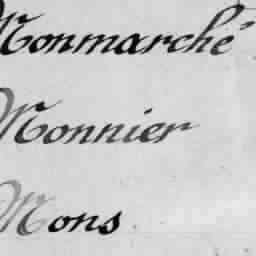 Monmarché
Monnier
Mons